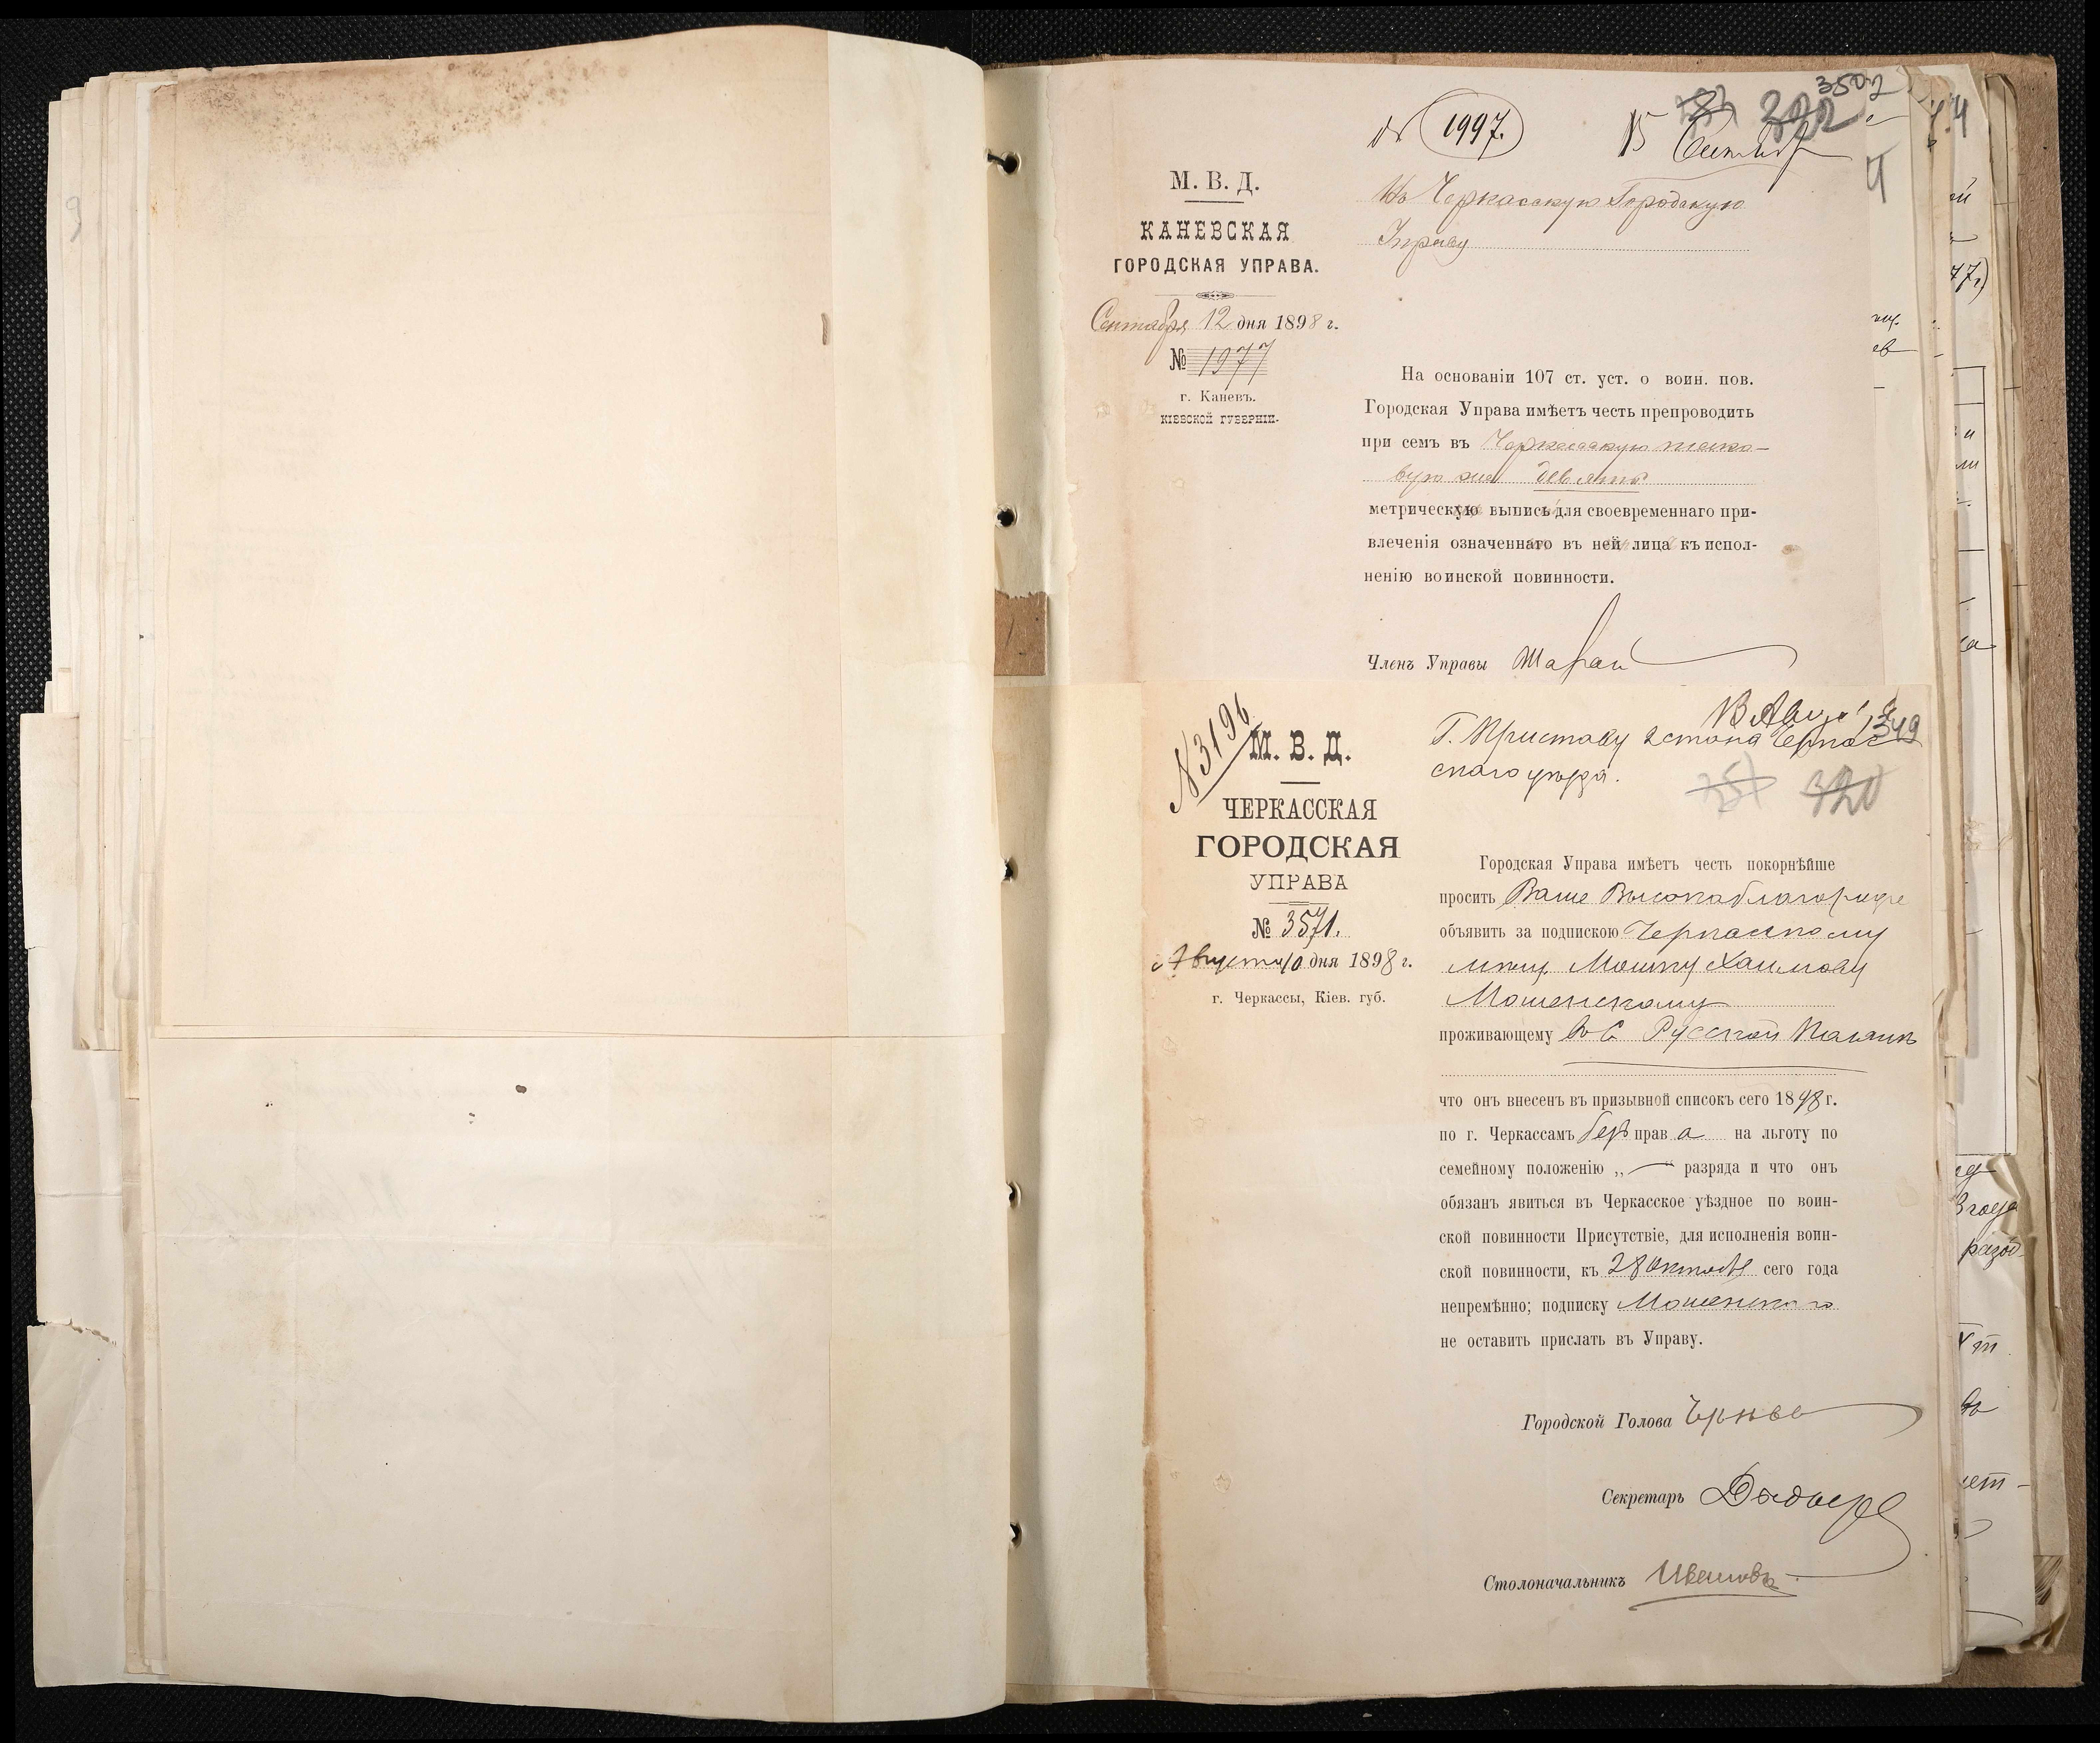 3502
№ 1997.
15
322
М. В. Д.
КАНЕВСКАЯ
ГОРОДСКАЯ УПРАВА.
Сентября 12 дня 1898 г.
№ 1977
г. Каневъ.
КІЕВСКОЙ ГУБЕРНІИ.
Въ Черкасскую Городскую
Управу
На основаніи 107 ст. уст. о воин. пов.
Городская Управа имѣетъ честь препроводить
при семъ въ Черкасскую
девять
метрическую выпись для своевременнаго при-
влеченія означеннаго въ ней лица къ испол-
ненію воинской повинности.
Членъ Управы
№ 3196
М. В. Д.
ЧЕРКАССКАЯ
ГОРОДСКАЯ
УПРАВА
№ 3571.
Августа 10 дня 1898 г.
г. Черкассы, Кіев. губ.
349
Г. Приставу 2 стана Черкас
скаго уѣзда.
320
Городская Управа имѣетъ честь покорнѣйше
просить Ваше Высокоблагородіе
объявить за подпискою Черкасскому
мѣщ. Мошку Хаимову
Мошенскому
проживающему въ с. Русской Полянѣ
что онъ внесенъ въ призывной списокъ сего 1898 г.
по г. Черкассамъ безъ права на льготу по
семейному положенію „ — “ разряда и что онъ
обязанъ явиться въ Черкасское уѣздное по воин-
ской повинности Присутствіе, для исполненія воин-
ской повинности, къ 28 Октября сего года
непремѣнно; подписку Мошенскаго
не оставить прислать въ Управу.
Городской Голова
Секретарь
Столоначальникъ Ивановъ